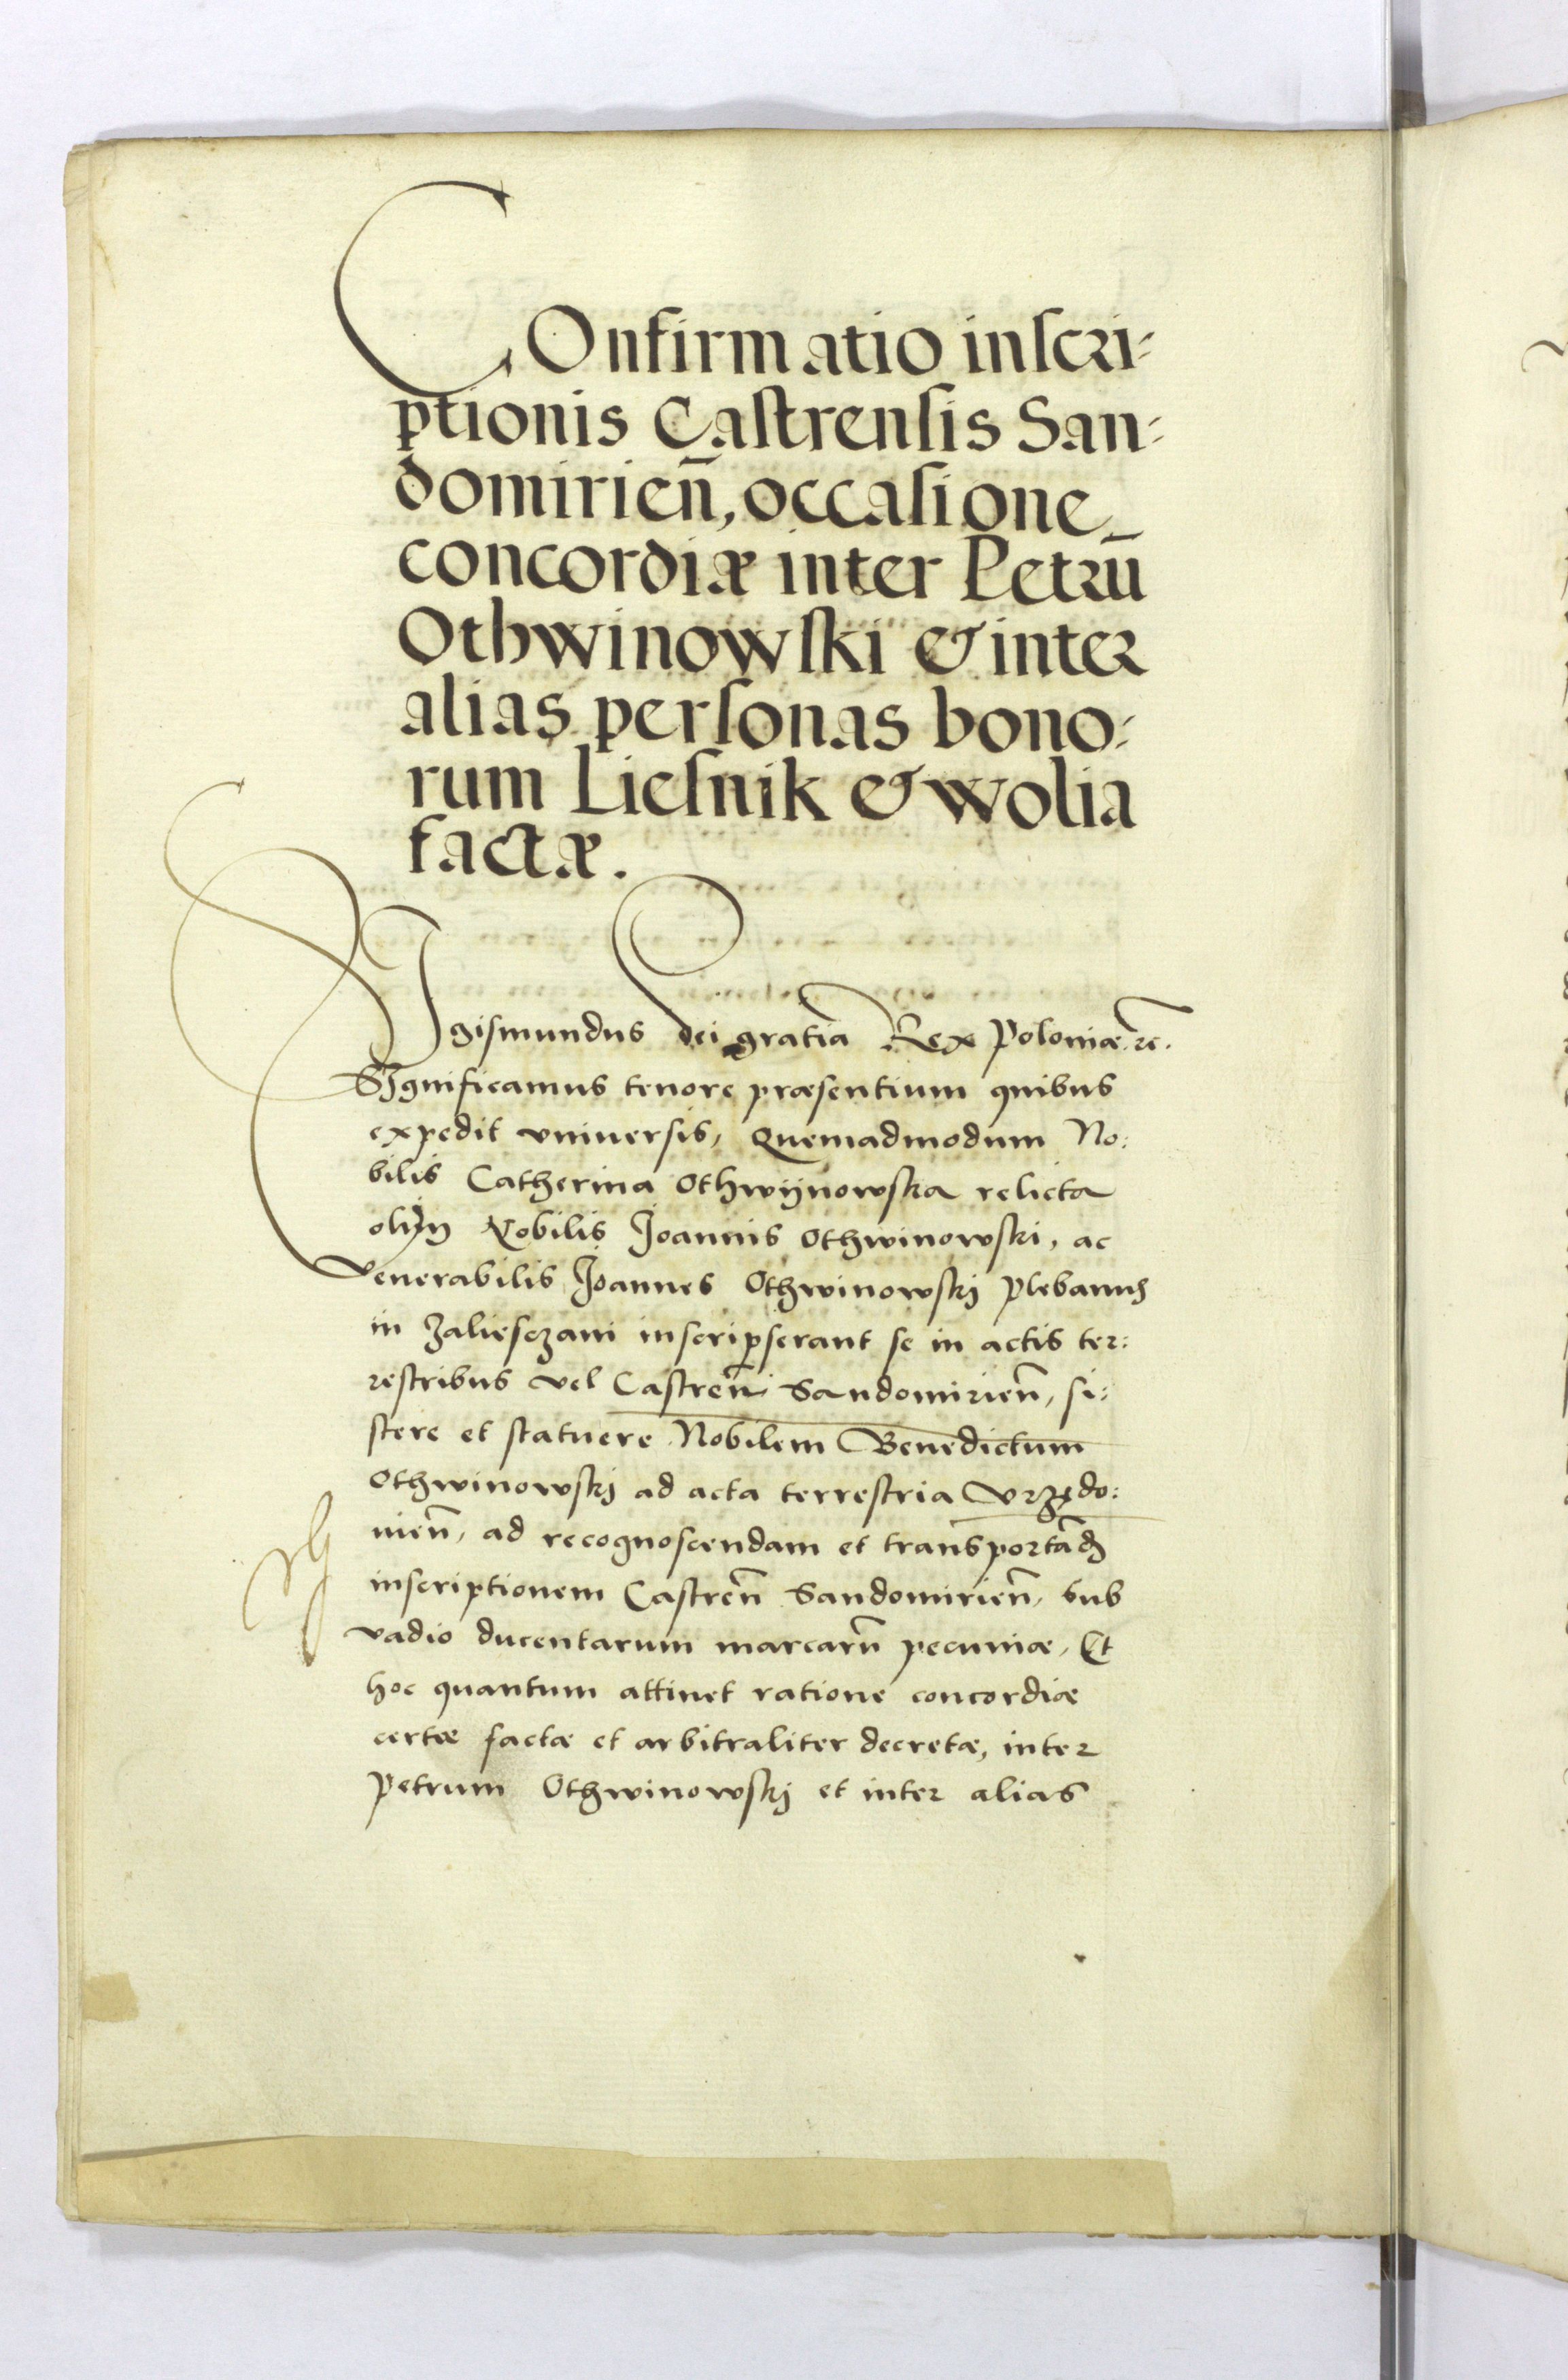 COnfirmatio inscri⸗
ptionis Castrensis San⸗
domirien̄, occasione
concordiæ inter Petrū
Othwinowski & inter
alias personas bono⸗
rum Liesnik & wolia
factæ.
SIgismundus dei gratia Rex Poloniæ. ꝛc.
SIgnificamus tenore præsentium quibus
expedit vniuersis, Quemadmodum No:
bilis Catherina Othwijnowska relicta
olim Nobilis Joannis Othwinowski, ac
Venerabilis Joannes Othwinowskj Plebanus
in Zaliesczani inscripserant se in actis ter:
restribus vel Castren̄ Sandomirien̄, si:
stere et statuere Nobilem Benedictum
Othwinowskj ad acta terrestria Vrzędo:
uien̄, ad recognoscendam et transportād
inscriptionem Castren̄ Sandomirien̄, sub
vadio ducentarum marcarū pecuniæ, Et
hoc quantum attinet ratione concordiæ
certæ factæ et arbitraliter decretæ, inter
Petrum Othwinowskj et inter alias